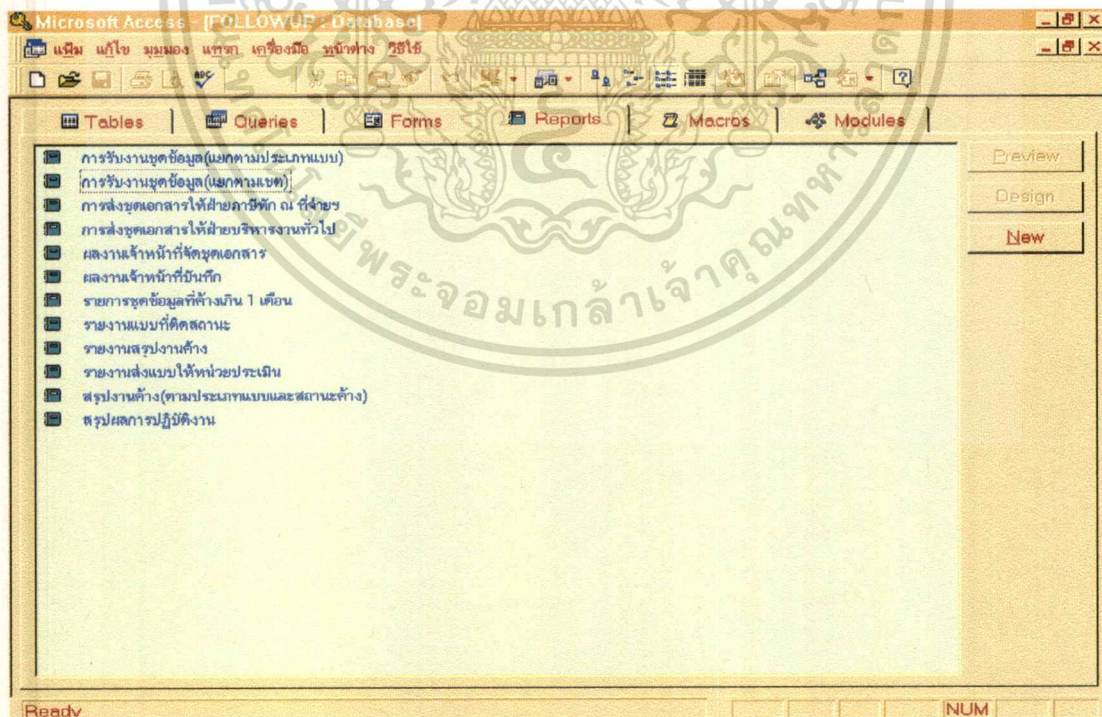 Microsoft Access - [FOLLOWUP : Database]
แฟ้ม แก้ไข มุมมอง แทรก เครื่องมือ หน้าต่าง วิธีใช้
Tables Queries Forms Reports Macros Modules
การรับงานชุดข้อมูล(แยกตามประเภทแบบ)
การรับงานชุดข้อมูล(แยกตามเขต)
การส่งชุดเอกสารให้ฝ่ายภาษีหัก ณ ที่จ่ายฯ
การส่งชุดเอกสารให้ฝ่ายบริหารงานทั่วไป
ผลงานเจ้าหน้าที่จัดชุดเอกสาร
ผลงานเจ้าหน้าที่บันทึก
รายการชุดข้อมูลที่ค้างเกิน 1 เดือน
รายงานแบบที่ติดสถานะ
รายงานสรุปงานค้าง
รายงานส่งแบบให้หน่วยประเมิน
สรุปงานค้าง(ตามประเภทแบบและสถานะค้าง)
สรุปผลการปฏิบัติงาน
Preview
Design
New
พระจอมเกล้าเจ้าคุณทหาร
Ready NUM